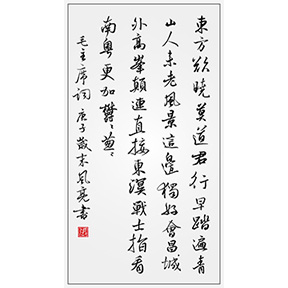 東方欲曉莫道君行早踏遍青
山人未老風景這邊獨好會昌城
外高峯顛連直接東溟戰士指看
南粤更加鬱〻葱〻
毛主席詞 庚子歲末風亮書